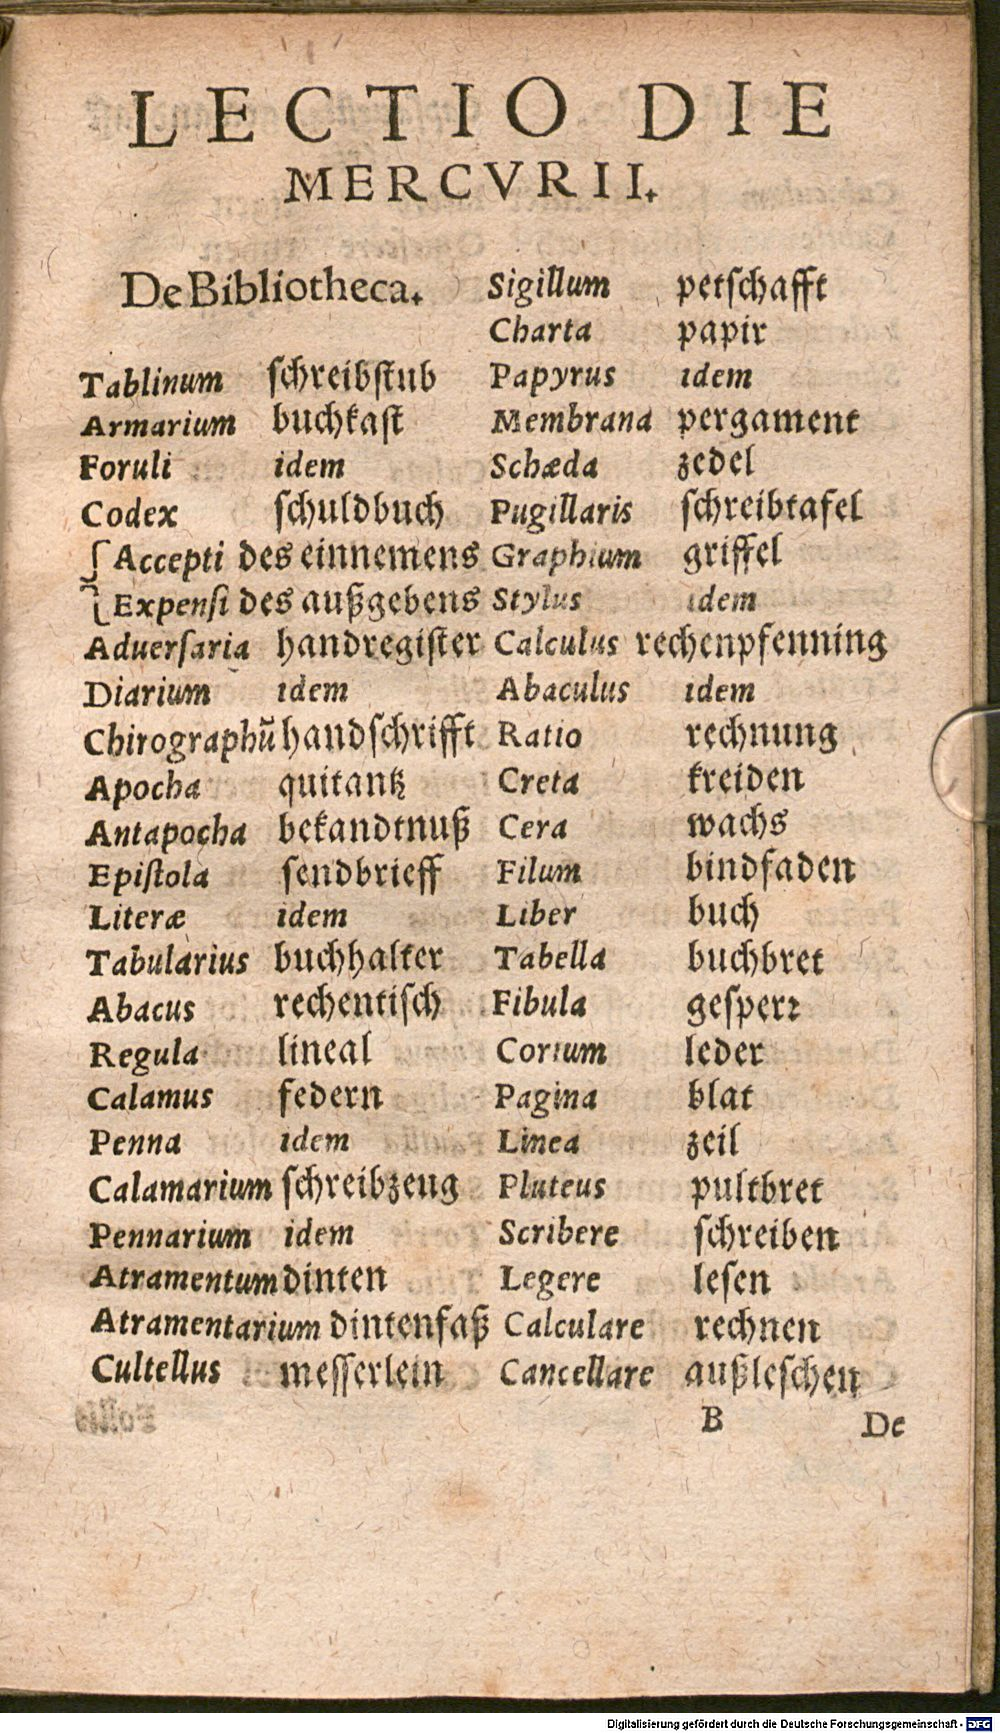 LECTIO DIE
MERCVRII.
De Bibliotheca.
Tablinum schreibstub
Armarium buchkast
Foruli idem
Codex schuldbuch
Accepti des einnemens
Expensi des außgebens
Adversaria handregister
Diarium idem
Chirographũ handschrifft
Apocha quitantz
Antapocha bekandtnuß
Epistola sendbrieff
Literæ idem
Tabularius buchhalter
Abacus rechentisch
Regula lineal
Calamus federn
Penna idem
Calamarium schreibzeug
Pennarium idem
Atramentum dinten
Atramentarium dintenfaß
Cultellus messerlein
Sigillum petschafft
Charta papir
Papyrus idem
Membrana pergament
Schæda zedel
Pugillaris schreibtafel
Graphium griffel
Stylus idem
Calculus rechenpfenning
Abaculus idem
Ratio rechnung
Creta kreiden
Cera wachs
Filum bindfaden
Liber buch
Tabella buchbret
Fibula gesperr
Corium leder
Pagina blat
Linea zeil
Pluteus pultbret
Scribere schreiben
Legere lesen
Calculare rechnen
Cancellare außleschen
B De
Digitalisierung gefördert durch die Deutsche Forschungsgemeinschaft - DFG